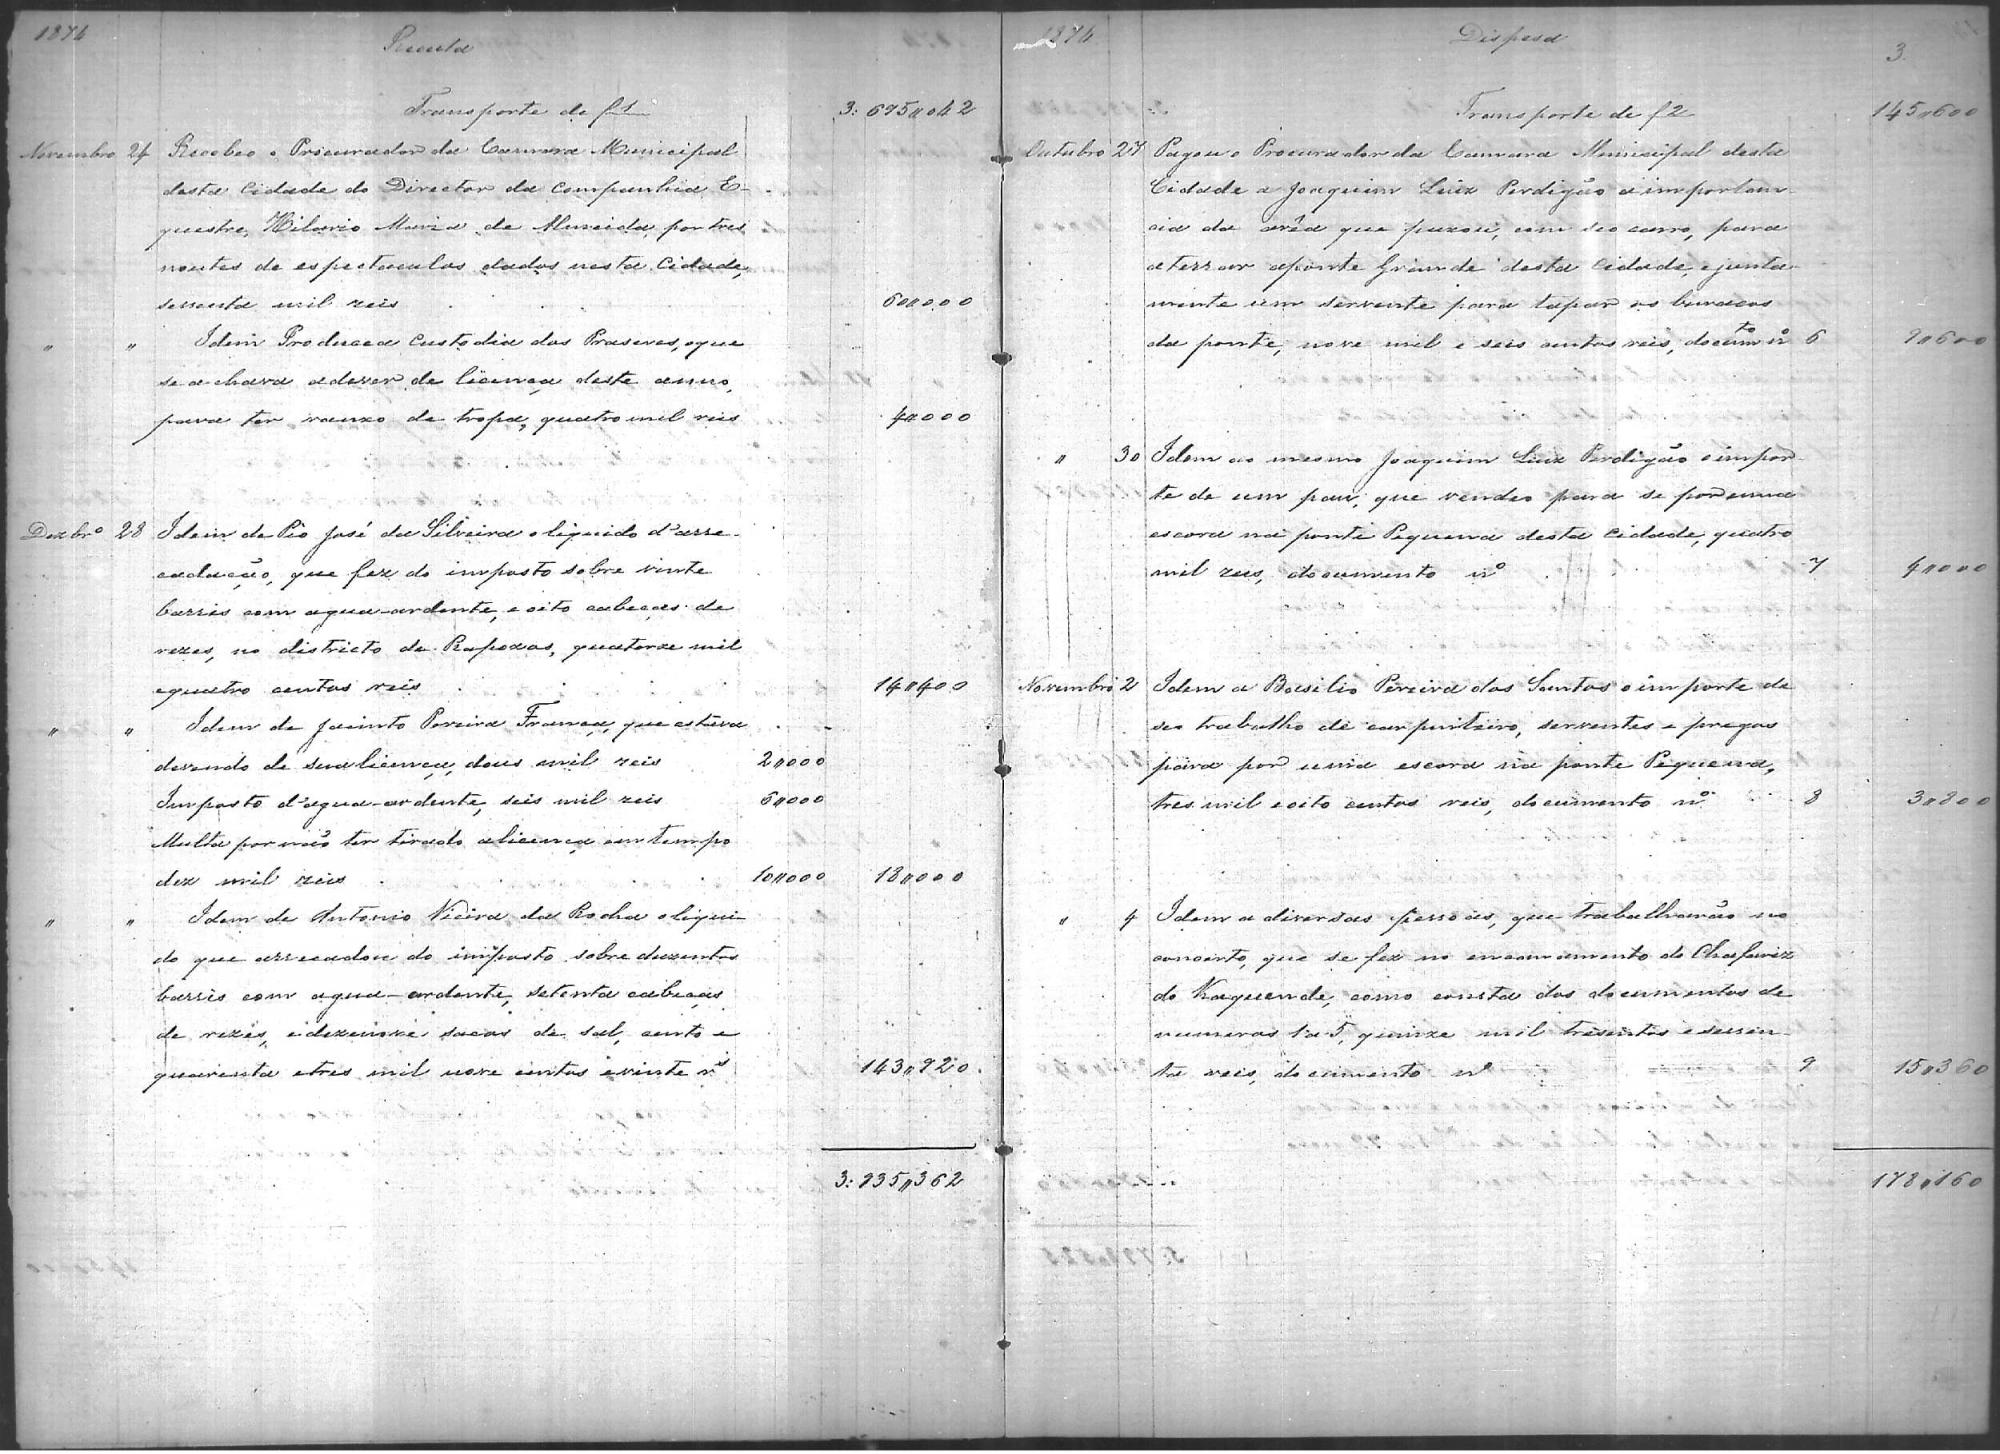 1874
Receita
Transporte de f1 3:695"042
Novembro 24 Recebeo o Procurador da Camara Municipal
desta Cidade do Director da Companhia E-
questre, Hilario Maria de Almeida, por tres
noutes de espectaculos dados nesta Cidade,
sessenta mil reis 60"000
" " Idem Producca Custodia dos Praseres, o que
se achava a dever de licença deste anno,
para ter ranxo de tropa, quatro mil reis 4"000
Dezbrº 28 Idem de Pio José da Silveira o liquido d'arre-
cadação, que fez do imposto sobre vinte
barris com agua-ardente, e oito cabeças de
rezes, no districto de Rapozos, quatorze mil
e quatro centos reis 14"400
" " Idem de Jacinto Pereira França, que estava
devendo de sua licença, dous mil reis 2"000
Imposto d'agua-ardente, seis mil reis 6"000
Multa por não ter tirado a licença em tempo
dez mil reis 10"000 18"000
" " Idem de Antonio Vieira da Rocha o liqui-
do que arrecadou do imposto sobre duzentos
barris com agua-ardente, setenta cabeças
de rezes, e dezenove sacas de sal, cento e
quarenta e tres mil nove centos e vinte rs 143"920
3:935"362
1874
Dispesa
3
Transporte de f2 145"600
Outubro 27 Pagou o Procurador da Camara Municipal desta
Cidade a Joaquim Luiz Perdigão a importan-
cia da arêa que puxou, com seo carro, para
aterrar a ponte Grande desta Cidade, e junta-
mente um servente para tapar os buracos
da ponte, nove mil e seis centos reis, documto nº 6 9"600
" 30 Idem ao mesmo Joaquim Luiz Perdigão o impor-
te de um pau, que vendeo para se por uma
escora na ponte Pequena desta Cidade, quatro
mil reis, documento nº 7 4"000
Novembro 2 Idem a Basilio Pereira dos Santos o importe de
seo trabalho de carpinteiro, serventes e pregos
para por uma escora na ponte Pequena,
tres mil e oito centos reis, documento nº 8 3"800
" 4 Idem a diversas pessoas, que trabalharão no
concerto, que se fez no encanamento do Chafariz
do Kaquende, como consta dos documentos de
numeros 1 a 5, quinze mil tresentos e sessen-
ta reis, documento nº 9 15"360
178"160